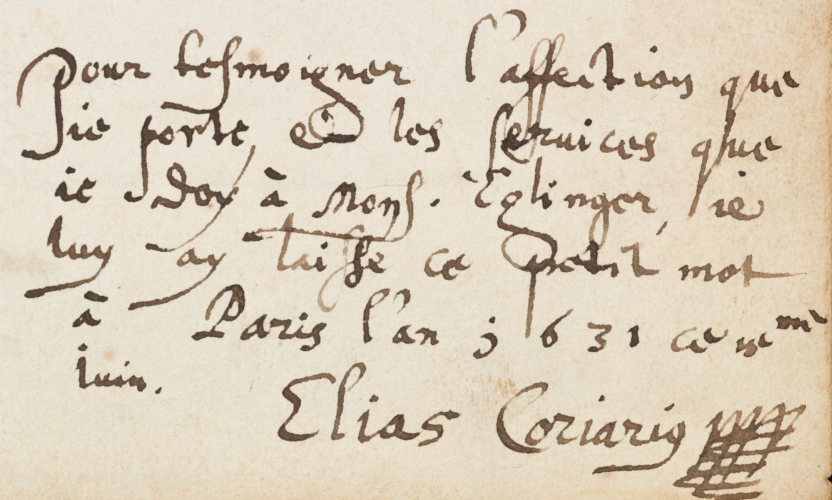 Pour tesmoigner l'affection que
ie porte, et les seruices que
ie doy à Mons. Eglinger, ie
luy ay laisse ce petit mot
à Paris l'an 1631 ce
iuin.
Elias Coriarius